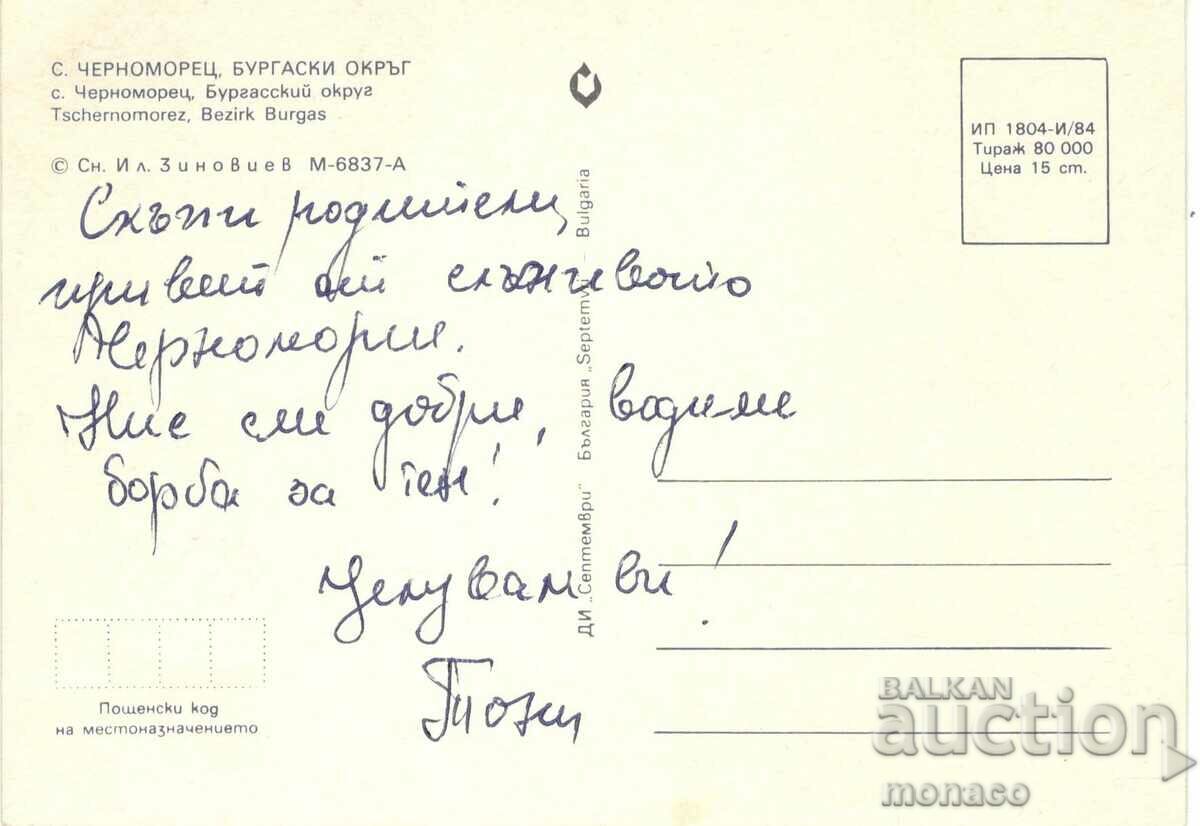 С. ЧЕРНОМОРЕЦ, БУРГАСКИ ОКРЪГ
с. Черноморец, Бургасский округ
Tschernomorez, Bezirk Burgas
© Сн. Ил. Зиновиев М-6837-А
Скъпи родители,
привет от слънчевото
Черноморие.
Ние сме добри, водиме
борба за тен!
Целувам ви!
Тони
ДИ „Септември" България „Septemvri" Bulgaria
ИП 1804-И/84
Тираж 80 000
Цена 15 ст.
Пощенски код
на местоназначението
BALKAN
auction
monaco